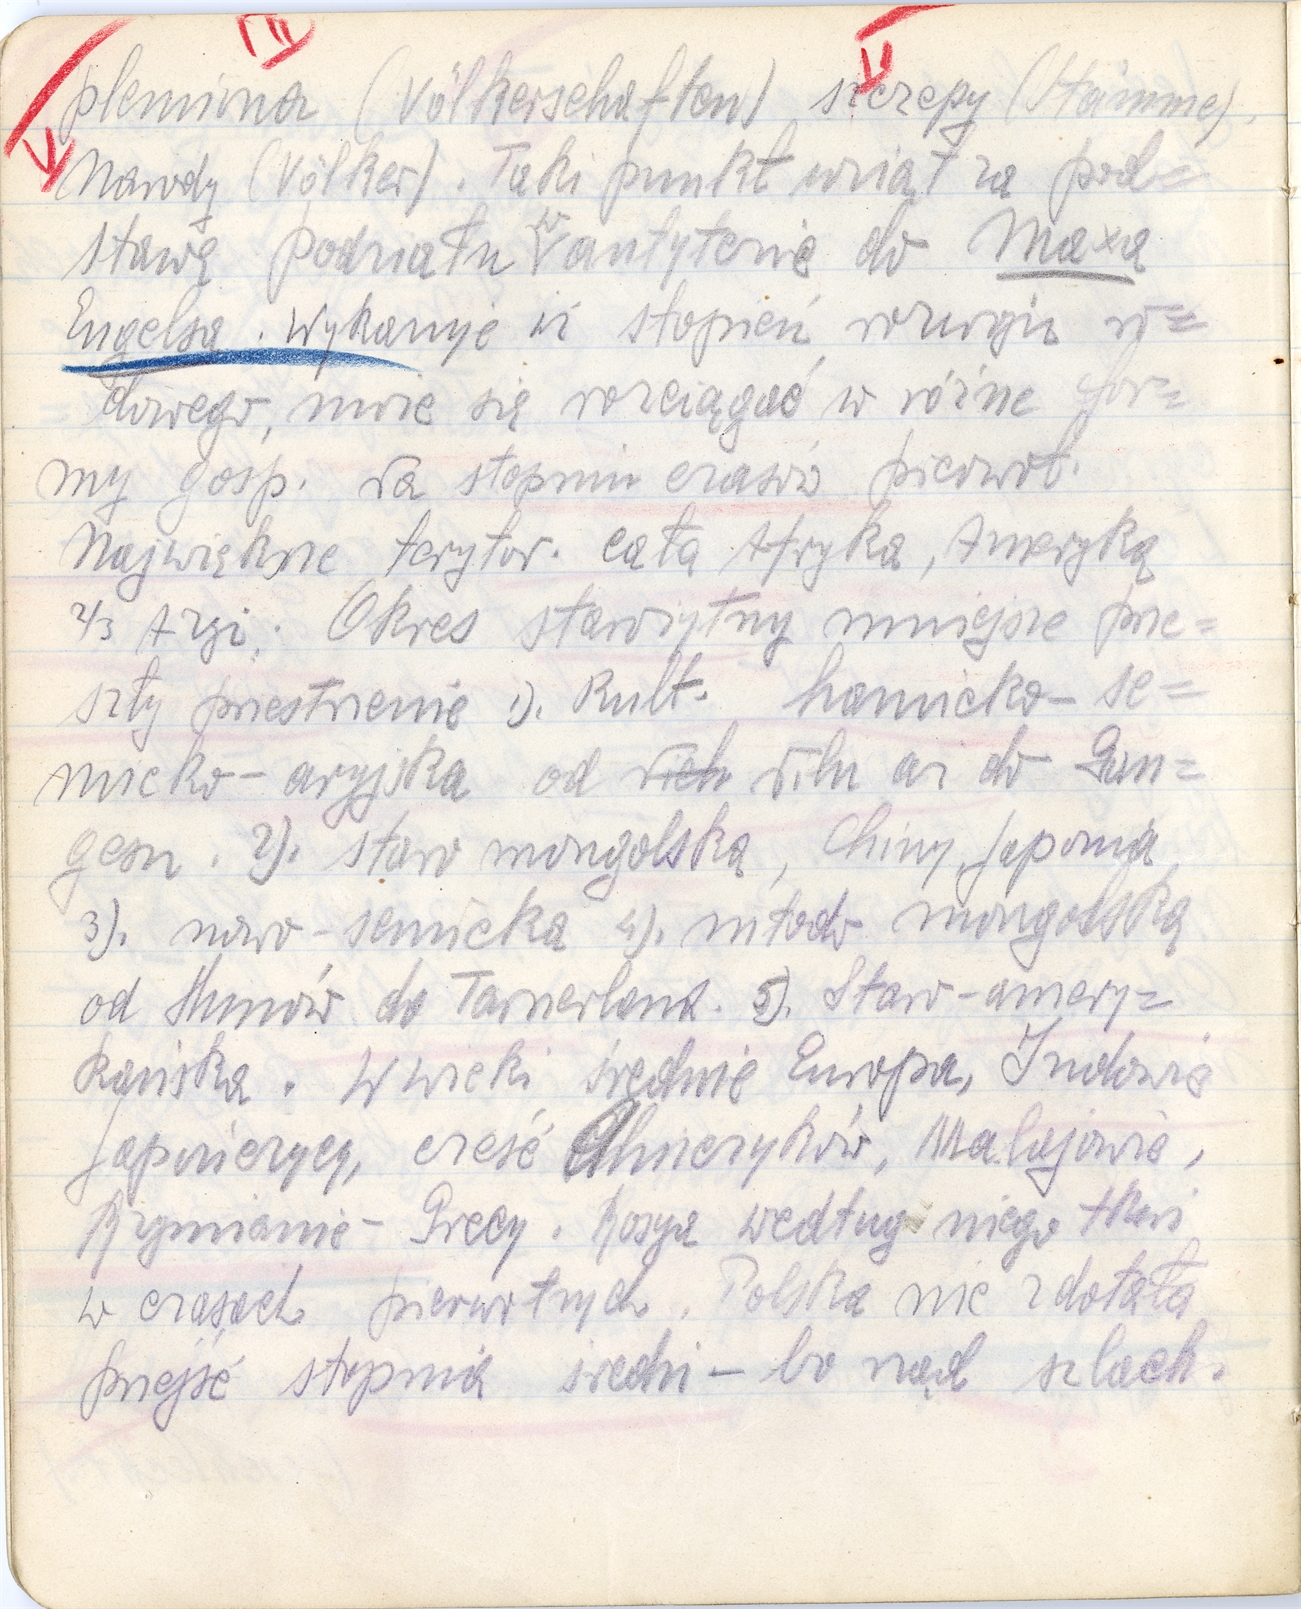 plemiona (Völkerschaften) szczepy (Stämme),
Narody (Völker). Taki punkt wziął za pod=
stawę podziału w antytezie do Maxa
Engelsa. Wykazuje iż stopień rozwoju ro=
dowego, może się rozciągać w różne for=
my gosp. Na stopniu czasów pierwot.
Największe terytor. cała Afryka, Ameryka
2/3 Azji. Okres starożytny mniejsze prze=
szły przestrzenie 1). Kult. hamicko-se=
micko-aryjska od Nilu aż do Gan=
gesu. 2). staro mongolska, Chiny, Japonia
3). nowo-semicka 4). młodo mongolska
od Hunów do Tamerlana. 5). Staro-amery=
kańska. W wieki średnie Europa, Indowie
Japończycy, część Chińczyków, Malajowie,
Rzymianie - Grecy. Rosya według niego tkwi
w czasach pierwotnych. Polska nie zdołała
przejść stopnia średni - bo rząd szlach.